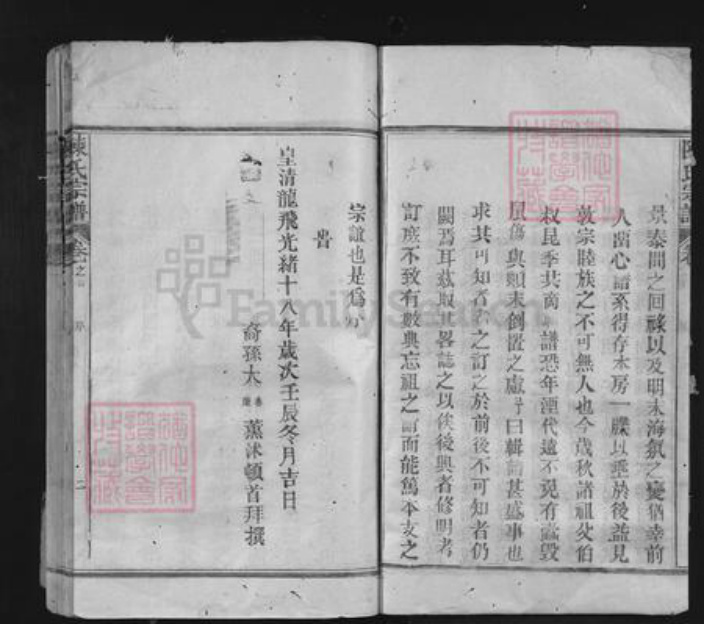 景泰間之回祿以及明末海氛之變猶幸前
人留心譜系得存本房一牒以垂於後益見
敦宗睦族之不可無人也今歲秋諸祖父伯
叔昆季共商 譜恐年湮代遠不免有蠹毀
風傷與顛末倒置之慮予曰輯譜甚盛事也
求其可知者 之訂之於前後不可知者仍
闕焉耳茲取其畧誌之以俟後與者修明考
訂庶不致有數典忘祖之誚而能篤本支之
宗誼也是為序
旹
皇清龍飛光緒十八年歲次壬辰冬月吉日
裔孫太 薰沐頓首拜撰
陳氏宗譜
卷之
序
二
FamilySearch